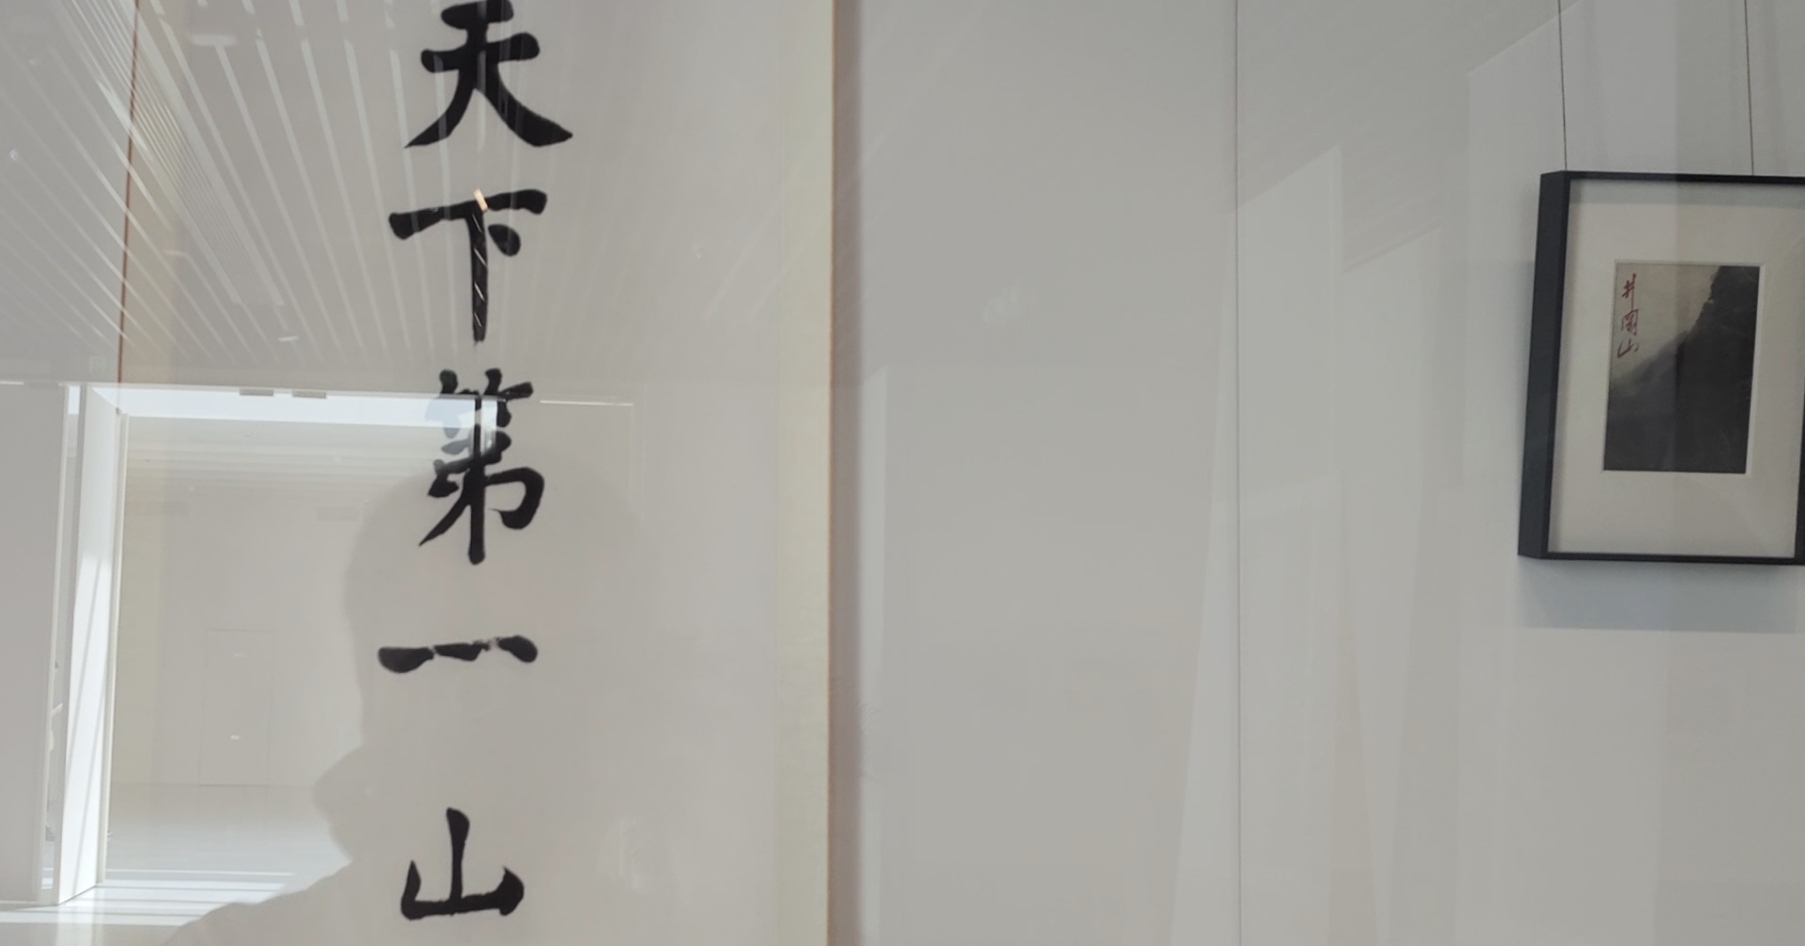 天下第一山
井岡山